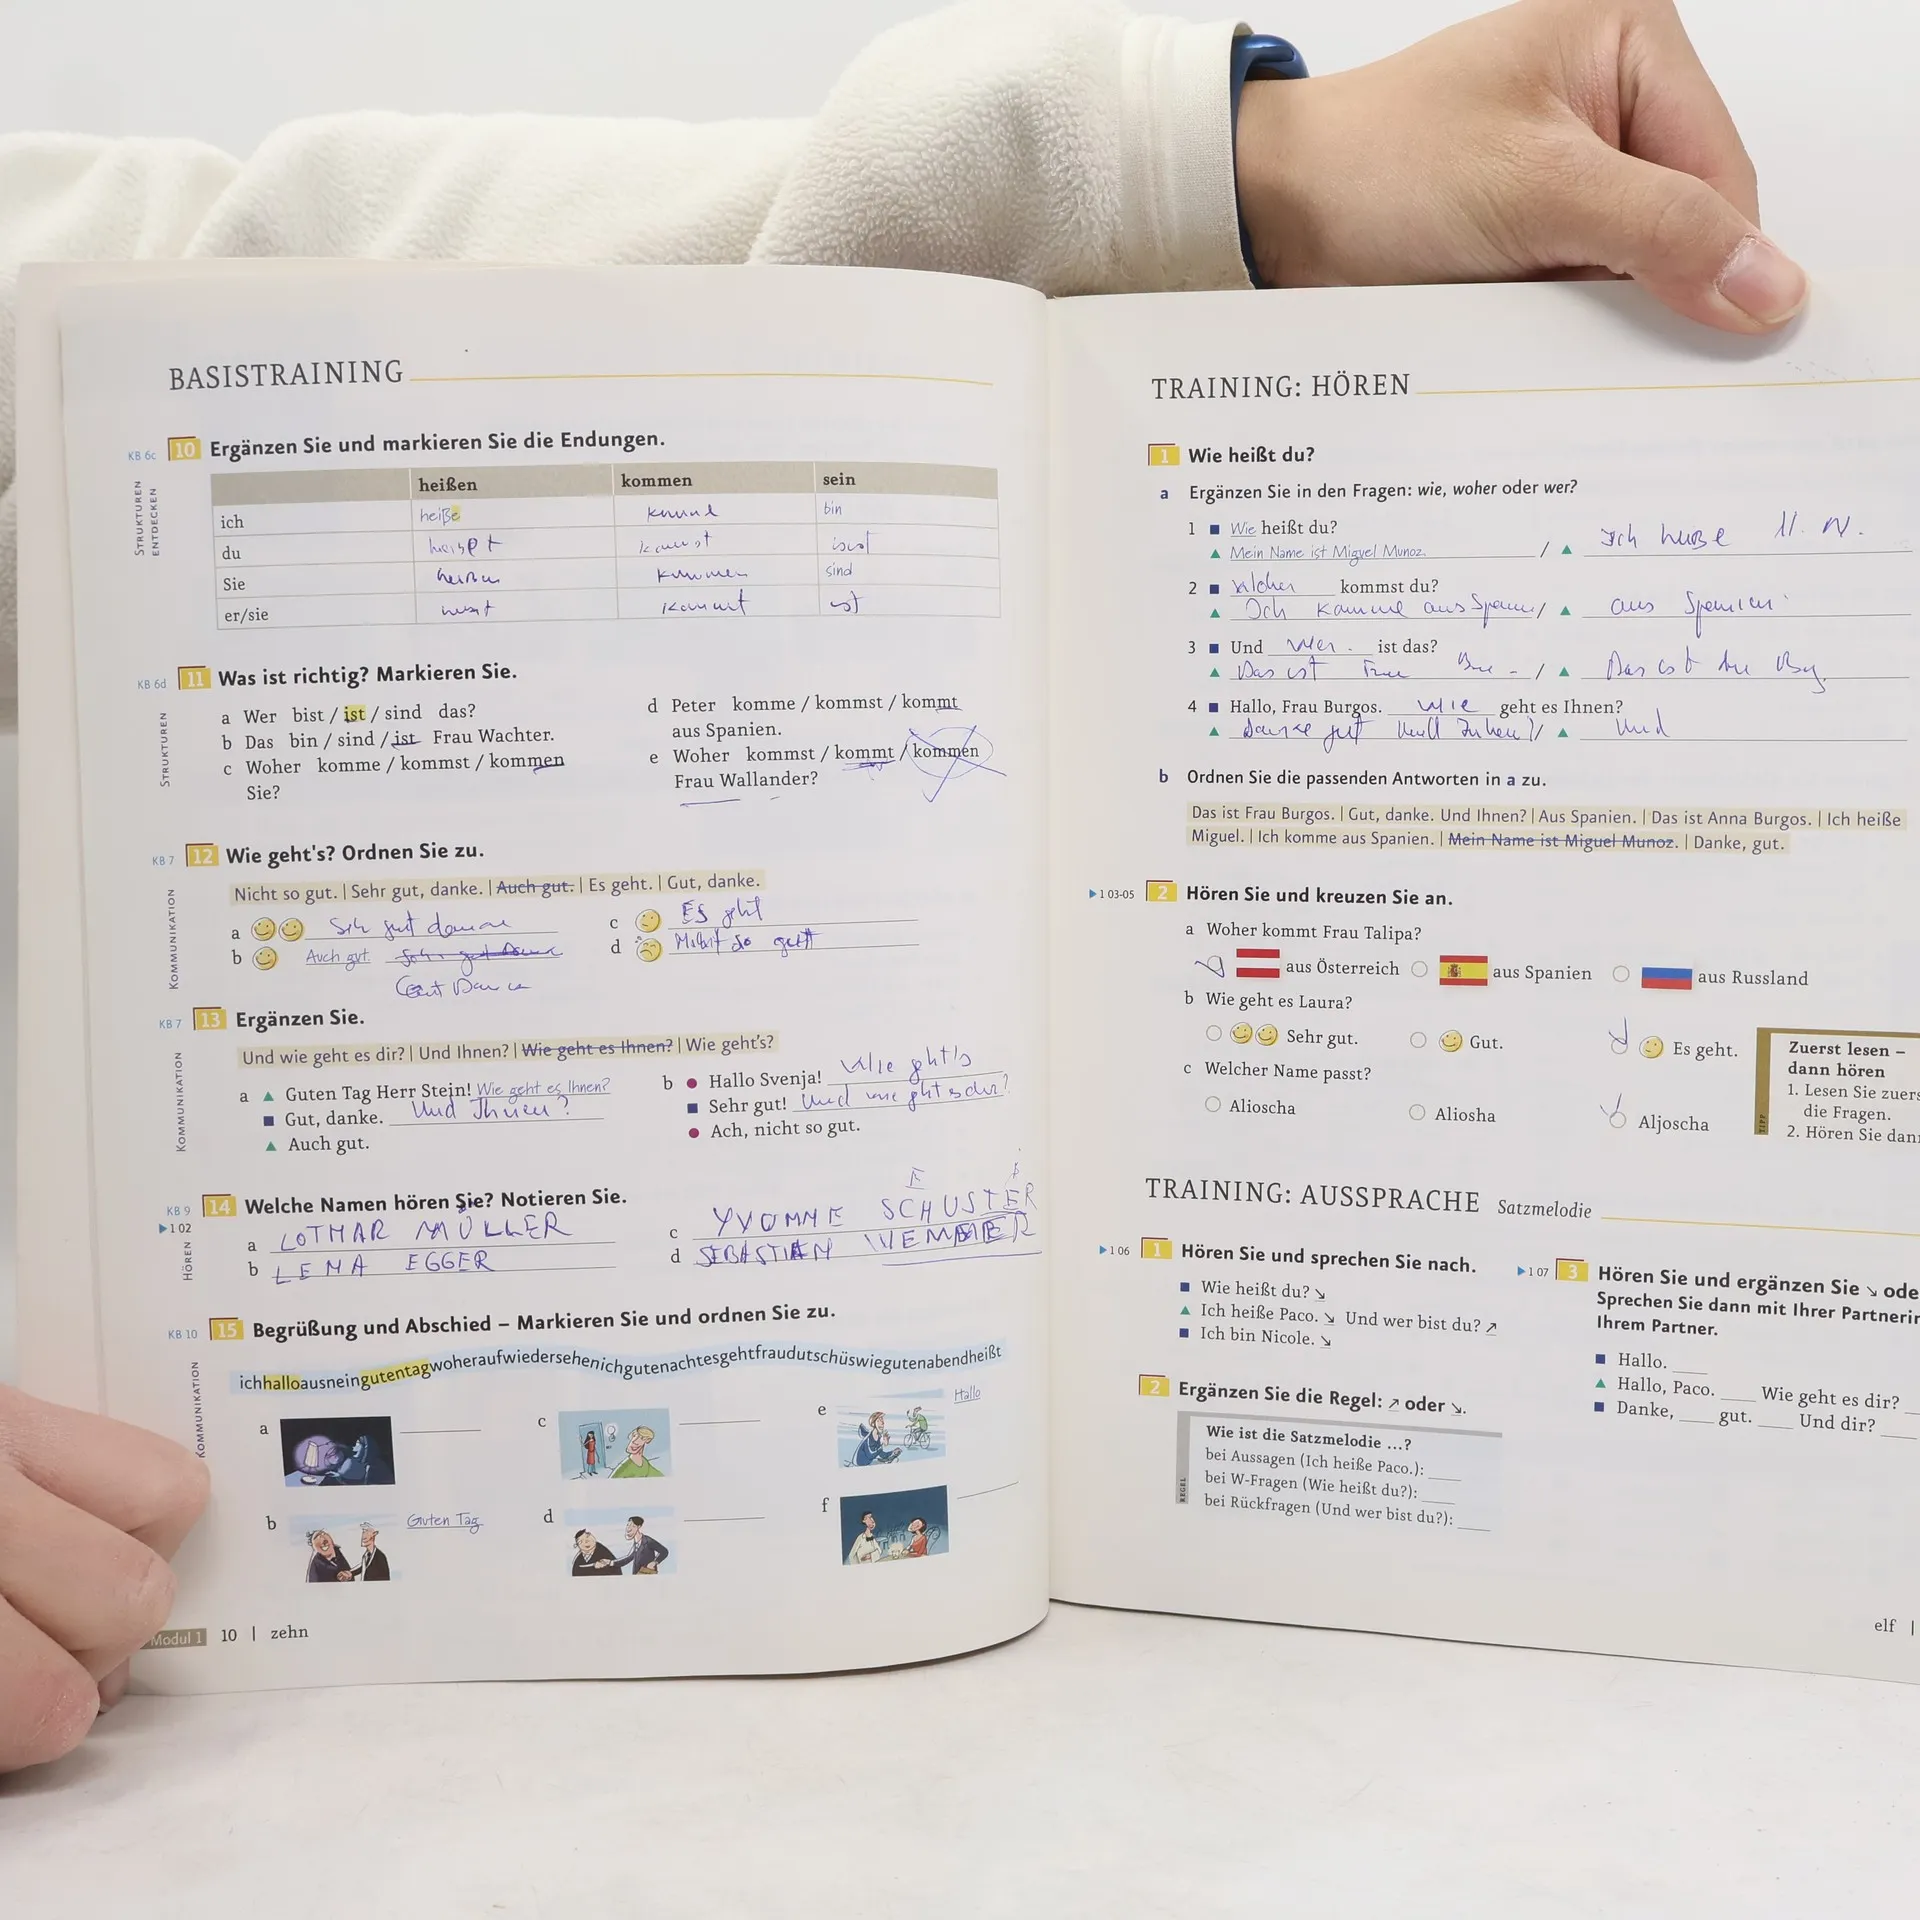 BASISTRAINING
KB 6c 10 Ergänzen Sie und markieren Sie die Endungen.
STRUKTUREN
ENTDECKEN
heißen kommen sein
ich heiße bin
du
Sie kommen sind
er/sie kommt ist
KB 6d 11 Was ist richtig? Markieren Sie.
STRUKTUREN
a Wer bist / ist / sind das?
b Das bin / sind / ist Frau Wachter.
c Woher komme / kommst / kommen
Sie?
d Peter komme / kommst / kommt
aus Spanien.
e Woher kommst / kommt / kommen
Frau Wallander?
KB 7 12 Wie geht's? Ordnen Sie zu.
KOMMUNIKATION
Nicht so gut. | Sehr gut, danke. | Auch gut. | Es geht. | Gut, danke.
a
b Auch gut.
c Es geht
d
KB 7 13 Ergänzen Sie.
KOMMUNIKATION
Und wie geht es dir? | Und Ihnen? | Wie geht es Ihnen? | Wie geht's?
a ▲ Guten Tag Herr Stein! Wie geht es Ihnen?
■ Gut, danke. Und Ihnen?
▲ Auch gut.
b ● Hallo Svenja! Wie geht's
■ Sehr gut! Und
● Ach, nicht so gut.
KB 9 14 Welche Namen hören Sie? Notieren Sie.
▶ 1 02
HÖREN
a LOTHAR MÜLLER
b LENA EGGER
c YVONNE SCHUSTER
d SEBASTIAN
KB 10 15 Begrüßung und Abschied – Markieren Sie und ordnen Sie zu.
KOMMUNIKATION
ichhalloausneingutentagwoheraufwiedersehenichgutenachtesgehtfraudutschüswiegutenabendheißt
a
c
e Hallo
b Guten Tag
d
f
Modul 1 10 | zehn
TRAINING: HÖREN
1 Wie heißt du?
a Ergänzen Sie in den Fragen: wie, woher oder wer?
1 ■ Wie heißt du?
▲ Mein Name ist Miguel Munoz. / ▲ Ich heiße M. N.
2 ■ kommst du?
▲ Ich komme aus / ▲ aus
3 ■ Und wer ist das?
▲ Das ist / ▲ Das ist
4 ■ Hallo, Frau Burgos. wie geht es Ihnen?
▲ Danke gut Und / ▲ Und
b Ordnen Sie die passenden Antworten in a zu.
Das ist Frau Burgos. | Gut, danke. Und Ihnen? | Aus Spanien. | Das ist Anna Burgos. | Ich heiße
Miguel. | Ich komme aus Spanien. | Mein Name ist Miguel Munoz. | Danke, gut.
▶ 1 03-05 2 Hören Sie und kreuzen Sie an.
a Woher kommt Frau Talipa?
aus Österreich aus Spanien aus Russland
b Wie geht es Laura?
Sehr gut. Gut. Es geht.
c Welcher Name passt?
Alioscha Aliosha Aljoscha
TIPP
Zuerst lesen –
dann hören
1. Lesen Sie zuers
die Fragen.
2. Hören Sie dan
TRAINING: AUSSPRACHE Satzmelodie
▶ 1 06 1 Hören Sie und sprechen Sie nach.
■ Wie heißt du? ↘
▲ Ich heiße Paco. ↘ Und wer bist du? ↗
■ Ich bin Nicole. ↘
2 Ergänzen Sie die Regel: ↗ oder ↘.
REGEL
Wie ist die Satzmelodie ...?
bei Aussagen (Ich heiße Paco.):
bei W-Fragen (Wie heißt du?):
bei Rückfragen (Und wer bist du?):
▶ 1 07 3 Hören Sie und ergänzen Sie ↘ ode
Sprechen Sie dann mit Ihrer Partnerin
Ihrem Partner.
■ Hallo.
▲ Hallo, Paco. Wie geht es dir?
■ Danke, gut. Und dir?
elf |